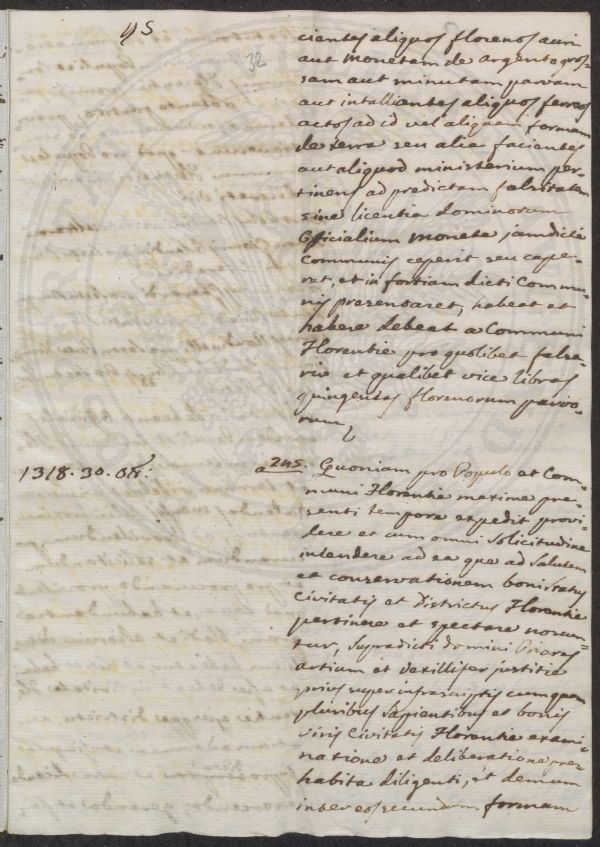 45
32
cientes aliquos florenos auri
aut Monetam de argento gros=
sam aut minutam parvam
aut intalliantes aliquos ferros
actos ad id vel aliquam formam
de terra seu alia facientes
aut aliquod ministerium per=
tinens ad predictam falsitatem
sine licentia dominorum
Officialium Monete jamdicte
Communis ceperit seu cape=
ret, et in fortiam dicti Commu=
nis presentaret, habeat et
habere debeat a Communi
Florentie pro quolibet falsa=
rio et qualibet vice libras
quingentas florenorum parvo=
rum
1318. 30. 08:
a 245. Quoniam pro Populo et Com=
muni Florentie maxime pre=
senti tempore expedit provi=
dere et cum omni solicitudine
intendere ad ea que ad salutem
et conservationem boni status
Civitatis et Districtus Florentie
pertinere et spectare noscun=
tur, supradicti domini Priores
artium et vexillifer justitie
prius super infrascriptis cumquam
pluribus sapientibus et bonis
viris Civitatis Florentie exami=
natione et deliberatione pre=
habita diligenti, et demum
inter eos secundum formam